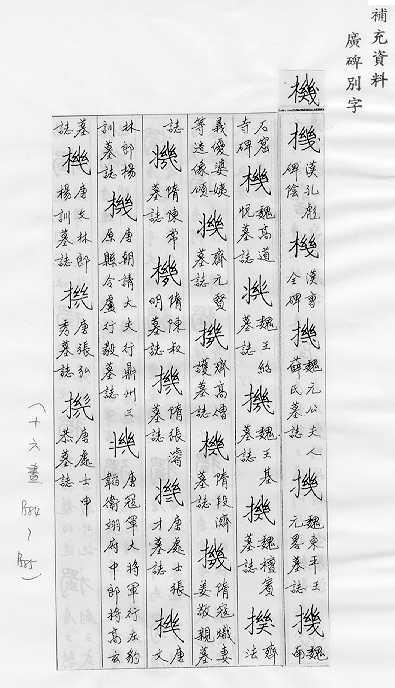 補充資料
廣碑別字
機
機漢孔彪碑陰機漢曹全碑機魏元公夫人薛氏墓誌機魏東平王元畧墓誌機魏南
石窟寺碑機魏高道悅墓誌機魏王紹墓誌機魏王基墓誌機魏檀賓墓誌機齊法
義優婆姨等造像頌機齊元賢墓誌機齊高僧護墓誌機隋段濟墓誌機隋寇熾妻姜敬親墓
誌機隋陳常墓誌機隋陳叔明墓誌機隋張濬墓誌機唐處士張才墓誌機唐文
林郎楊訓墓誌機唐朝請大夫行鼎州三原縣令盧行毅墓誌機唐冠軍大將軍行左豹韜衛翊府中郎將高玄
墓誌機唐文林郎楊訓墓誌機唐張弘秀墓誌機唐處士申恭墓誌
(十六畫